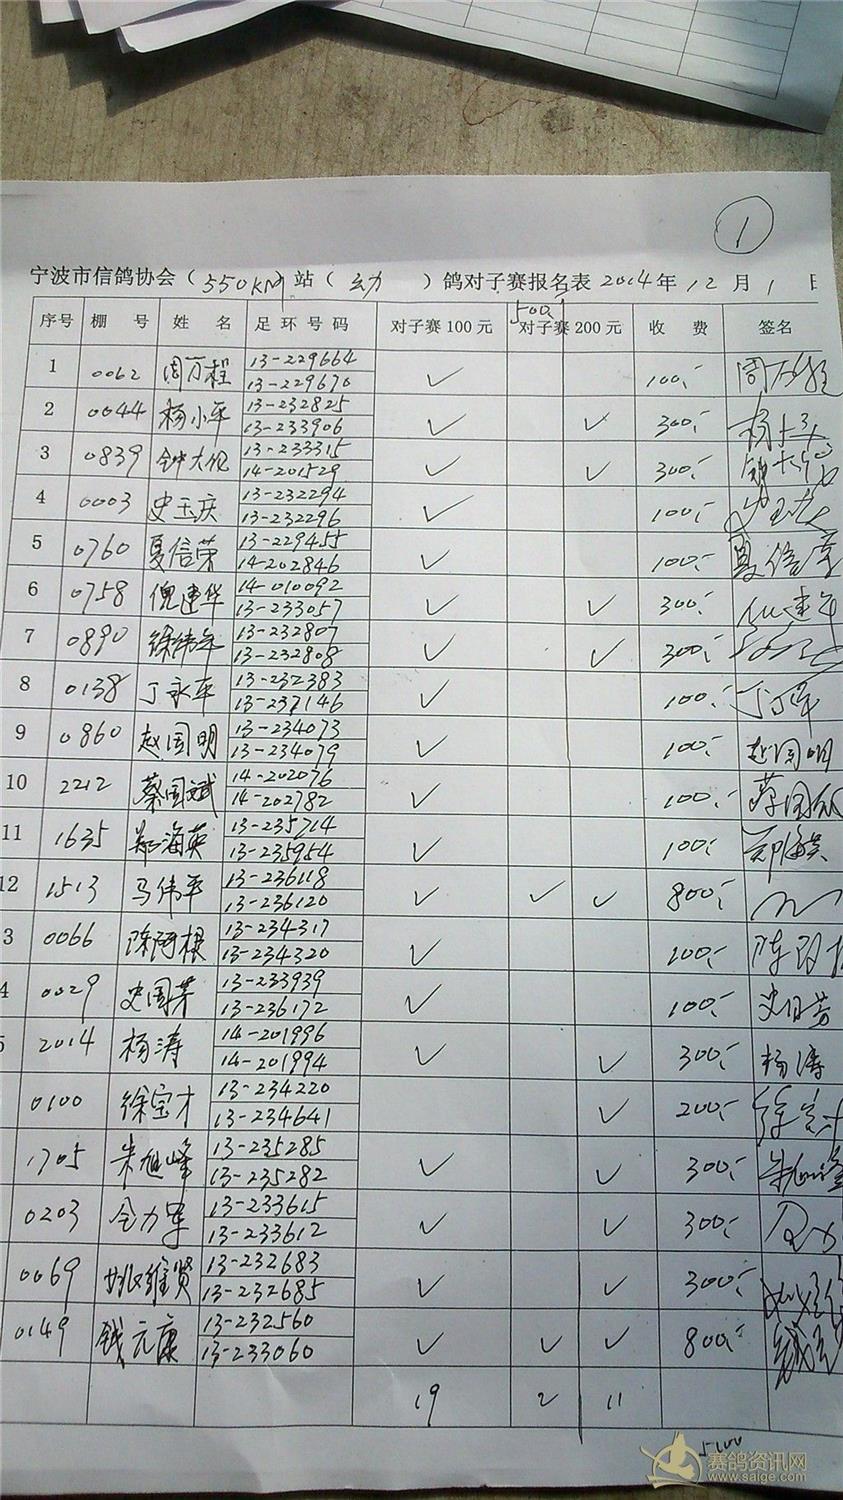 1
宁波市信鸽协会（550KM）站（ 幼 ）鸽对子赛报名表 2014年 12 月 1 日
序号 棚 号 姓 名 足环号码 对子赛100元 500 对子赛200元 收 费 签名
1 0062 周万程 13-229664 ✓ 100.-
13-229670
2 0044 杨小平 13-232825 ✓ ✓ 300.-
13-233906
3 0839 钟大伦 13-233315 ✓ ✓ 300.-
14-201529
4 0003 史玉庆 13-232294 ✓ 100.-
13-232296
5 0760 夏信荣 13-229455 ✓ 100.- 夏信荣
14-202846
6 0758 倪建华 14-010092 ✓ ✓ 300.-
13-233057
7 0890 徐伟年 13-232807 ✓ ✓ 300.-
13-232808
8 0138 丁永军 13-232383 ✓ 100.-
13-237146
9 0860 赵国明 13-234073 ✓ 100.- 赵国明
13-234079
10 2212 蔡国斌 14-202076 ✓ 100.- 蔡国斌
14-202782
11 1635 郑海英 13-235714 ✓ 100.- 郑海英
13-235954
12 1513 马伟平 13-236118 ✓ ✓ ✓ 800.-
13-236120
3 0066 陈阿根 13-234317 ✓ 100.- 陈阿根
13-234320
4 0029 史国芳 13-233939 ✓ 100.- 史国芳
13-236172
5 2014 杨涛 14-201996 ✓ ✓ 300.- 杨涛
14-201994
0100 徐宝才 13-234220 ✓ 200.-
13-234641
1705 朱旭峰 13-235285 ✓ ✓ 300.- 朱旭峰
13-235282
0203 仝力军 13-233615 ✓ ✓ 300.-
13-233612
0069 姚维贤 13-232683 ✓ ✓ 300.-
13-232685
0149 钱元康 13-232560 ✓ ✓ ✓ 800.-
13-233060
19 2 11
5100
赛鸽资讯网
www.saige.com